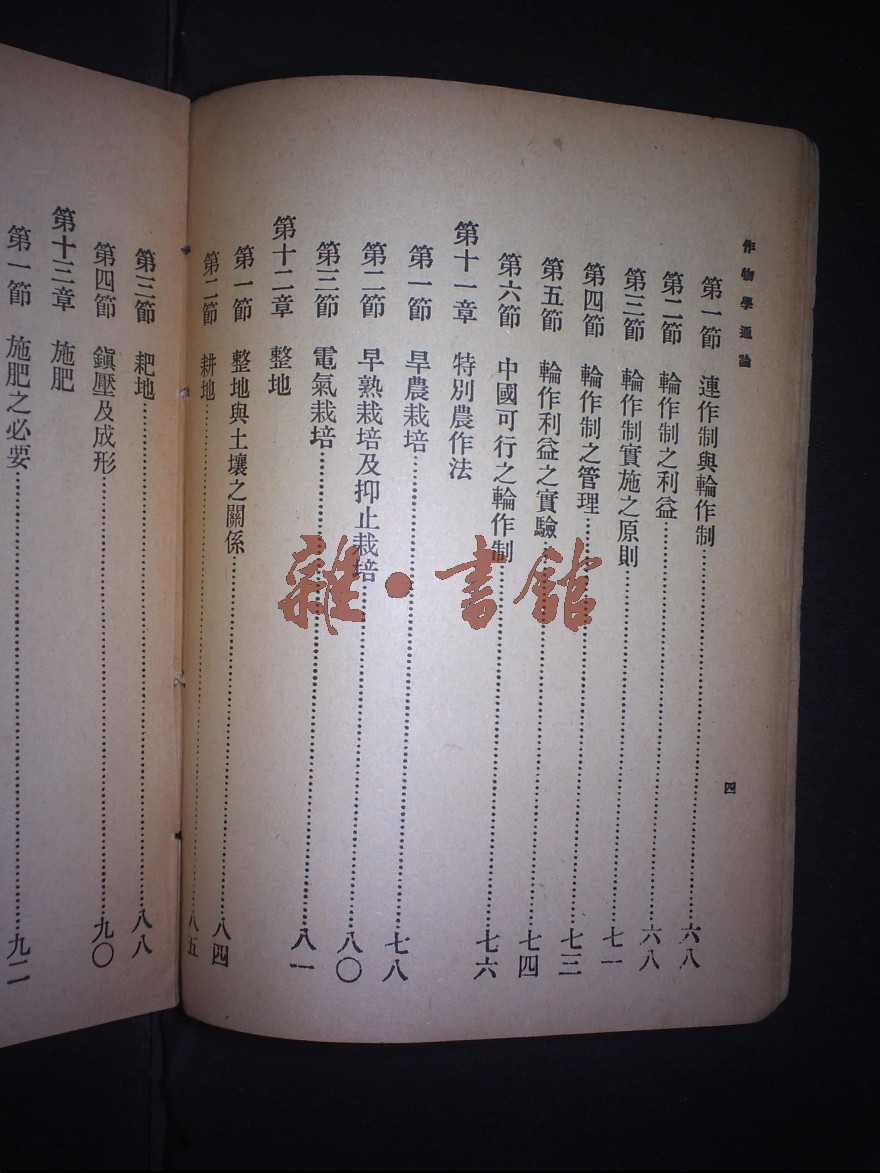 作物學通論
四
第一節 連作制與輪作制……六八
第二節 輪作制之利益……六八
第三節 輪作制實施之原則……七一
第四節 輪作制之管理……七三
第五節 輪作利益之實驗……七四
第六節 中國可行之輪作制……七六
第十一章 特別農作法
第一節 旱農栽培……七八
第二節 早熟栽培及抑止栽培……八〇
第三節 電氣栽培……八一
第十二章 整地
第一節 整地與土壤之關係……八四
第二節 耕地……八五
第三節 耙地……八八
第四節 鎮壓及成形……九〇
第十三章 施肥
第一節 施肥之必要……九二
雜·書館